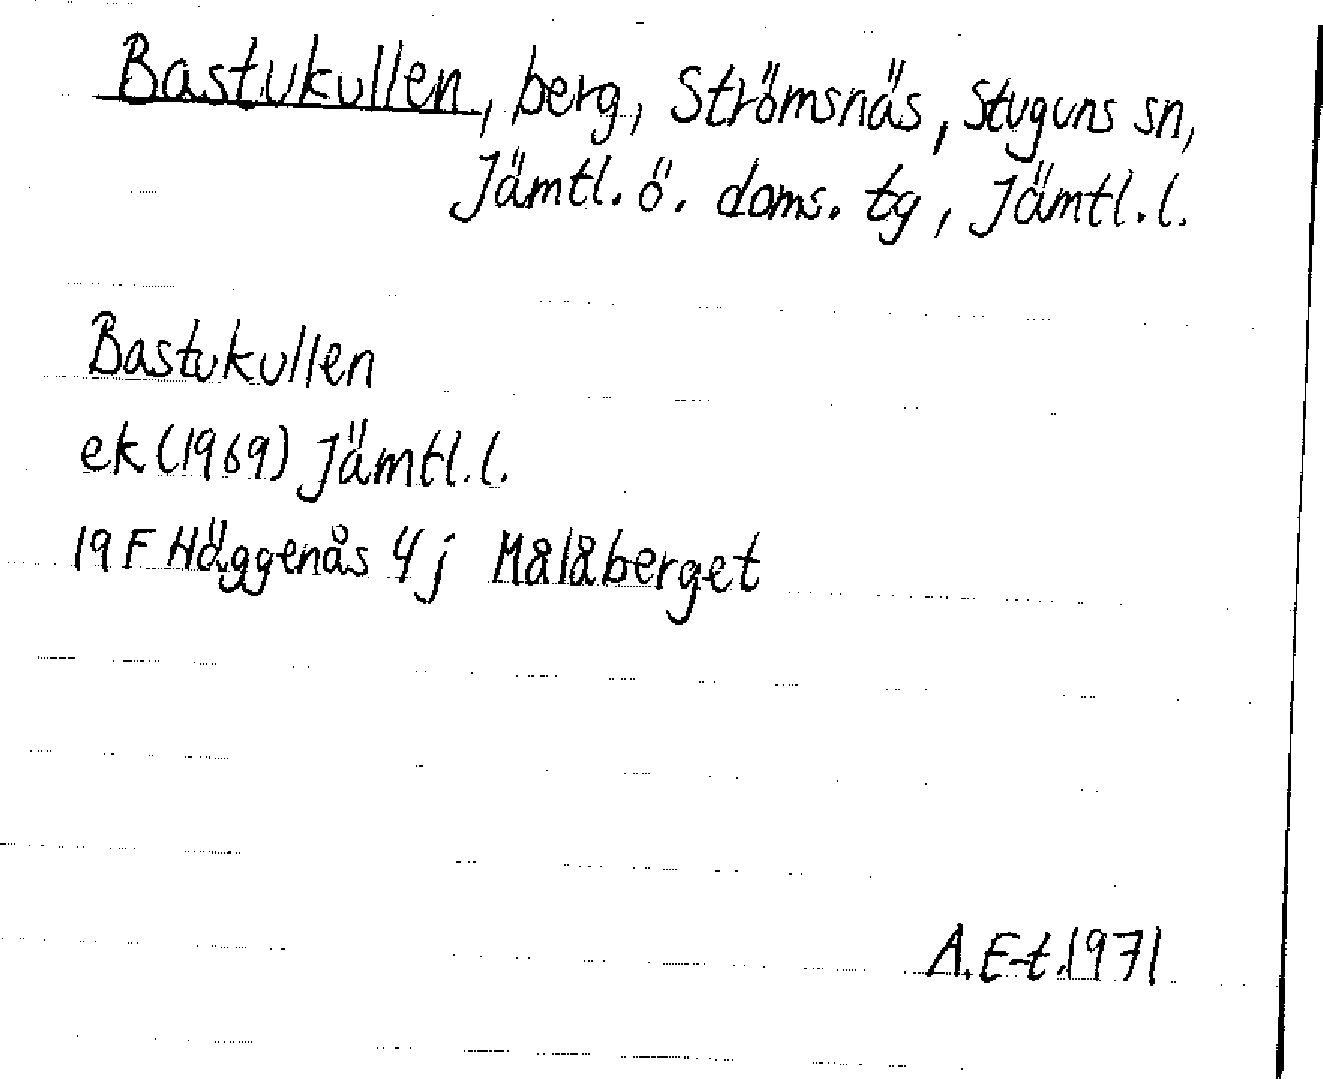 Bastukullen, berg, Strömsnäs, Stuguns sn,
Jämtl. ö. doms. tg, Jämtl. l.
Bastukullen
ek (1969) Jämtl. l.
19 F Häggenås 4 j Målåberget
A. E-t. 1971